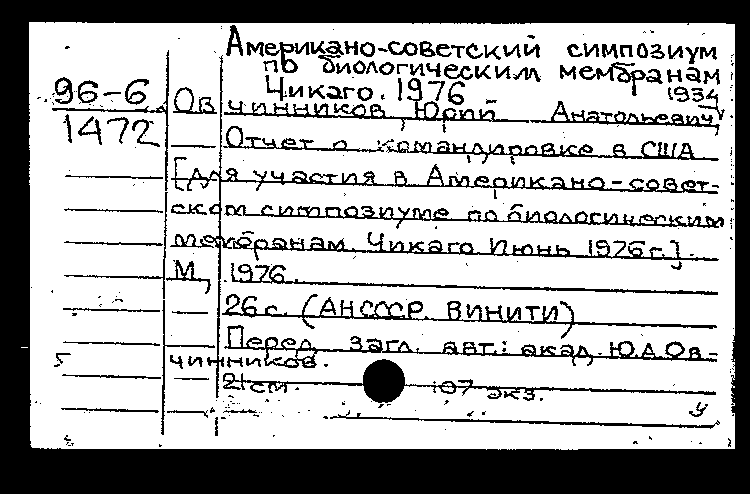 Американо-советский симпозиум
по биологическим мембранам
Чикаго. 1976
96-6
1472
1934
Овчинников, Юрий Анатольевич,
Отчет о командировке в США
[для участия в Американо-совет-
ском симпозиуме по биологическим
мембранам. Чикаго Июнь 1976 г.].
М., 1976.
26 с. (АН СССР. ВИНИТИ)
Перед загл. авт.: акад. Ю.А.Ов-
чинников.
21 см. 107 экз.
у